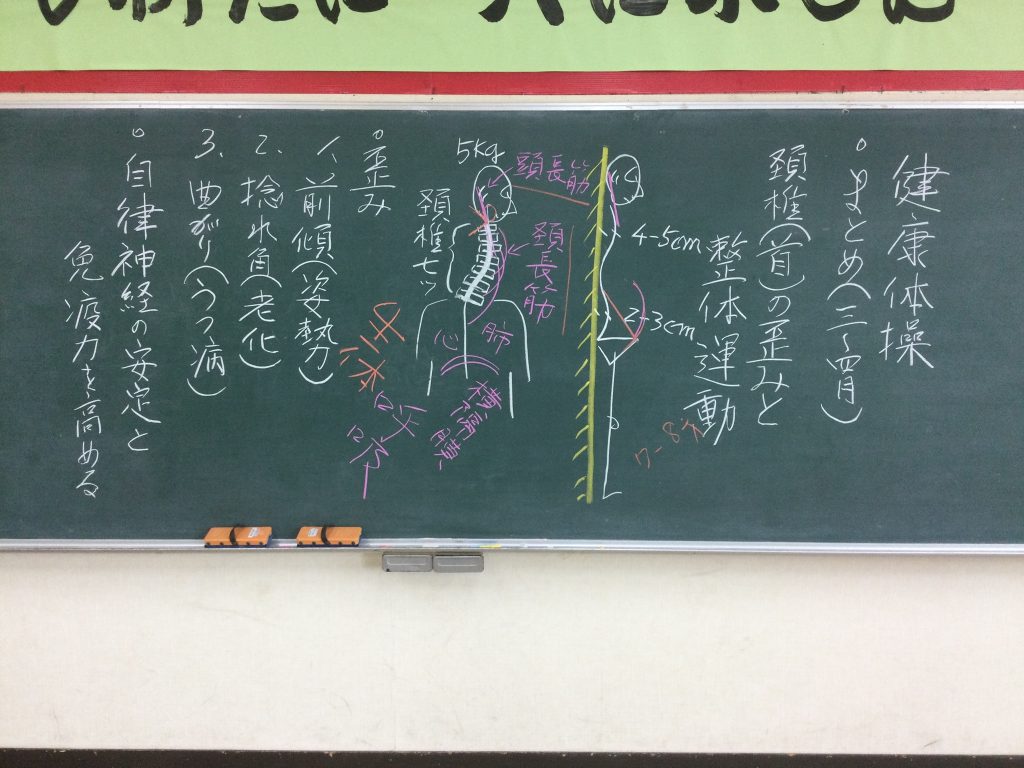 健康体操
○まとめ(三〜四月)
頚椎(首)の歪みと
整体運動
4-5cm
2-3cm
7-8
頚長筋
頚長筋
5Kg
頚椎七ツ
心
肺
横隔膜
○歪み
1、前傾(姿勢)
2、捻れ負(老化)
3、曲がり(うつ病)
○自律神経の安定と
免疫力を高める